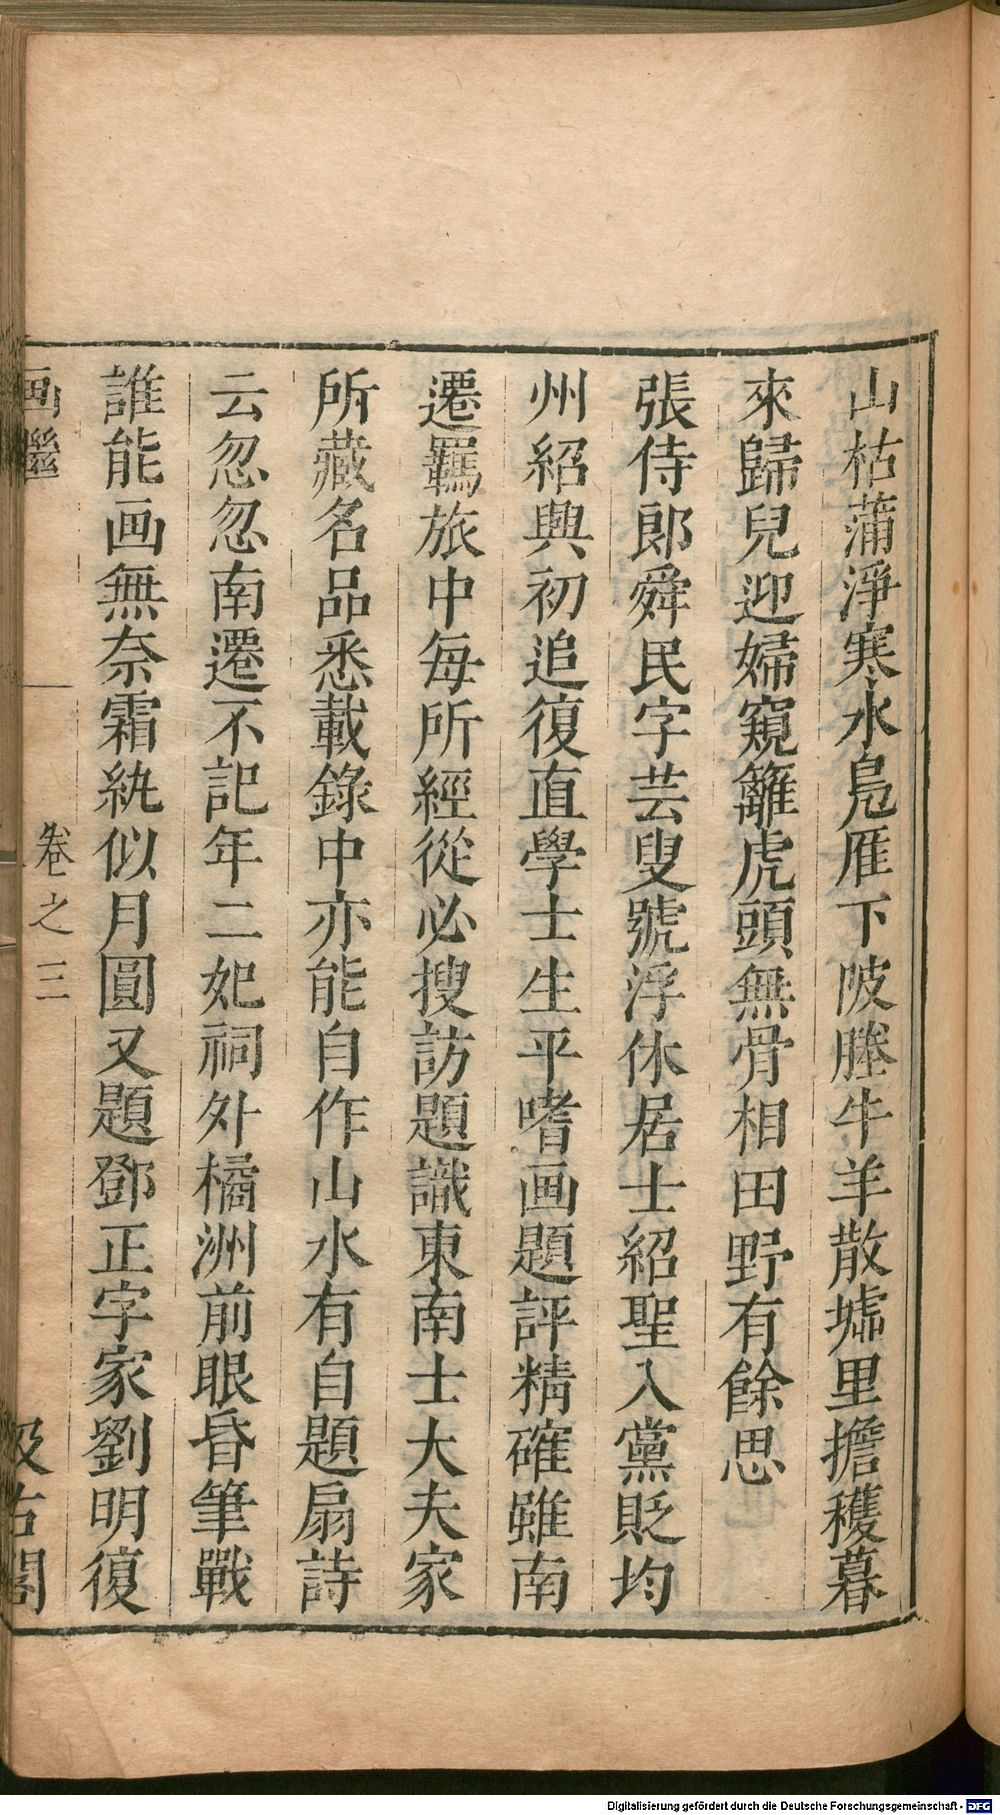 山枯蒲淨寒水鳧雁下陂塍牛羊散墟里擔穫暮
來歸兒迎婦窺籬虎頭無骨相田野有餘思
張侍郎舜民字芸叟號浮休居士紹聖入黨貶均
州紹興初追復直學士生平嗜画題評精確雖南
遷羈旅中每所經從必搜訪題識東南士大夫家
所藏名品悉載錄中亦能自作山水有自題扇詩
云忽忽南遷不記年二妃祠外橘洲前眼昏筆戰
誰能画無奈霜紈似月圓又題鄧正字家劉明復
画繼
卷之三
汲古閣
Digitalisierung gefördert durch die Deutsche Forschungsgemeinschaft - DFG